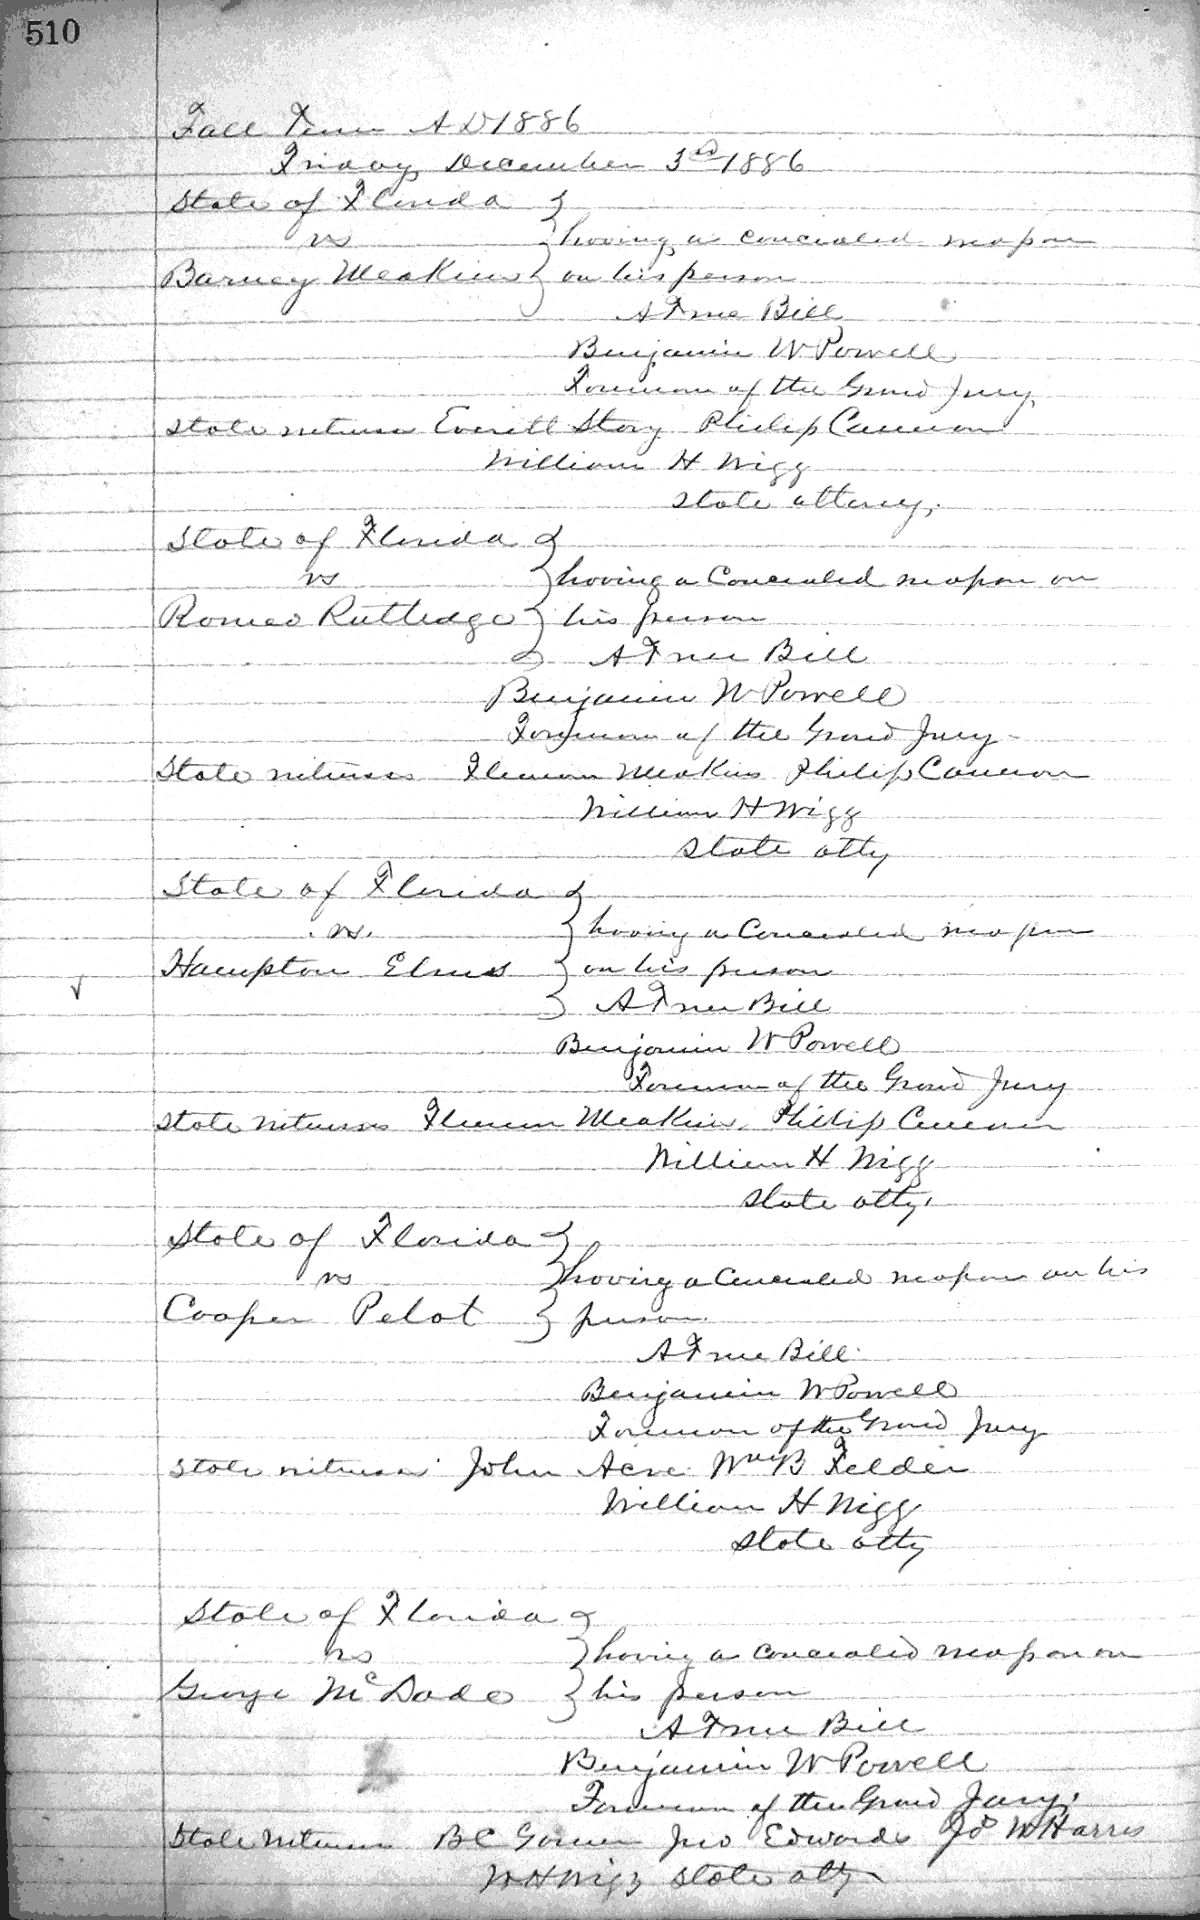 510
Fall Term A D 1886
Friday December 3rd 1886
State of Florida
vs
having a concealed weapon
Barney Meakins
on his person
A True Bill
Benjamin W Powell
Foreman of the Grand Jury,
State witness Everett Story Philip Cameron
William H Wigg
State attorney,
State of Florida
vs
having a Concealed weapon on
Romeo Rutledge
his person
A True Bill
Benjamin W Powell
Foreman of the Grand Jury
State witnesses Meakins Philip Cameron
William H Wigg
State atty
State of Florida
vs.
having a Concealed weapon
Hampton Elms
on his person
A True Bill
Benjamin W Powell
Foreman of the Grand Jury
State witnesses Meakins, Phillip Cameron
William H Wigg
State atty,
State of Florida
vs
having a Concealed weapon on his
Cooper Pelot
person.
A True Bill.
Benjamin W Powell
Foreman of the Grand Jury
State witness John Wm B Felder
William H Wigg
State atty
State of Florida
vs
having a concealed weapon on
George McDade
his person
A True Bill
Benjamin W Powell
Foreman of the Grand Jury,
State witness B C Jno Edwards W Harris
W H Wigg State atty